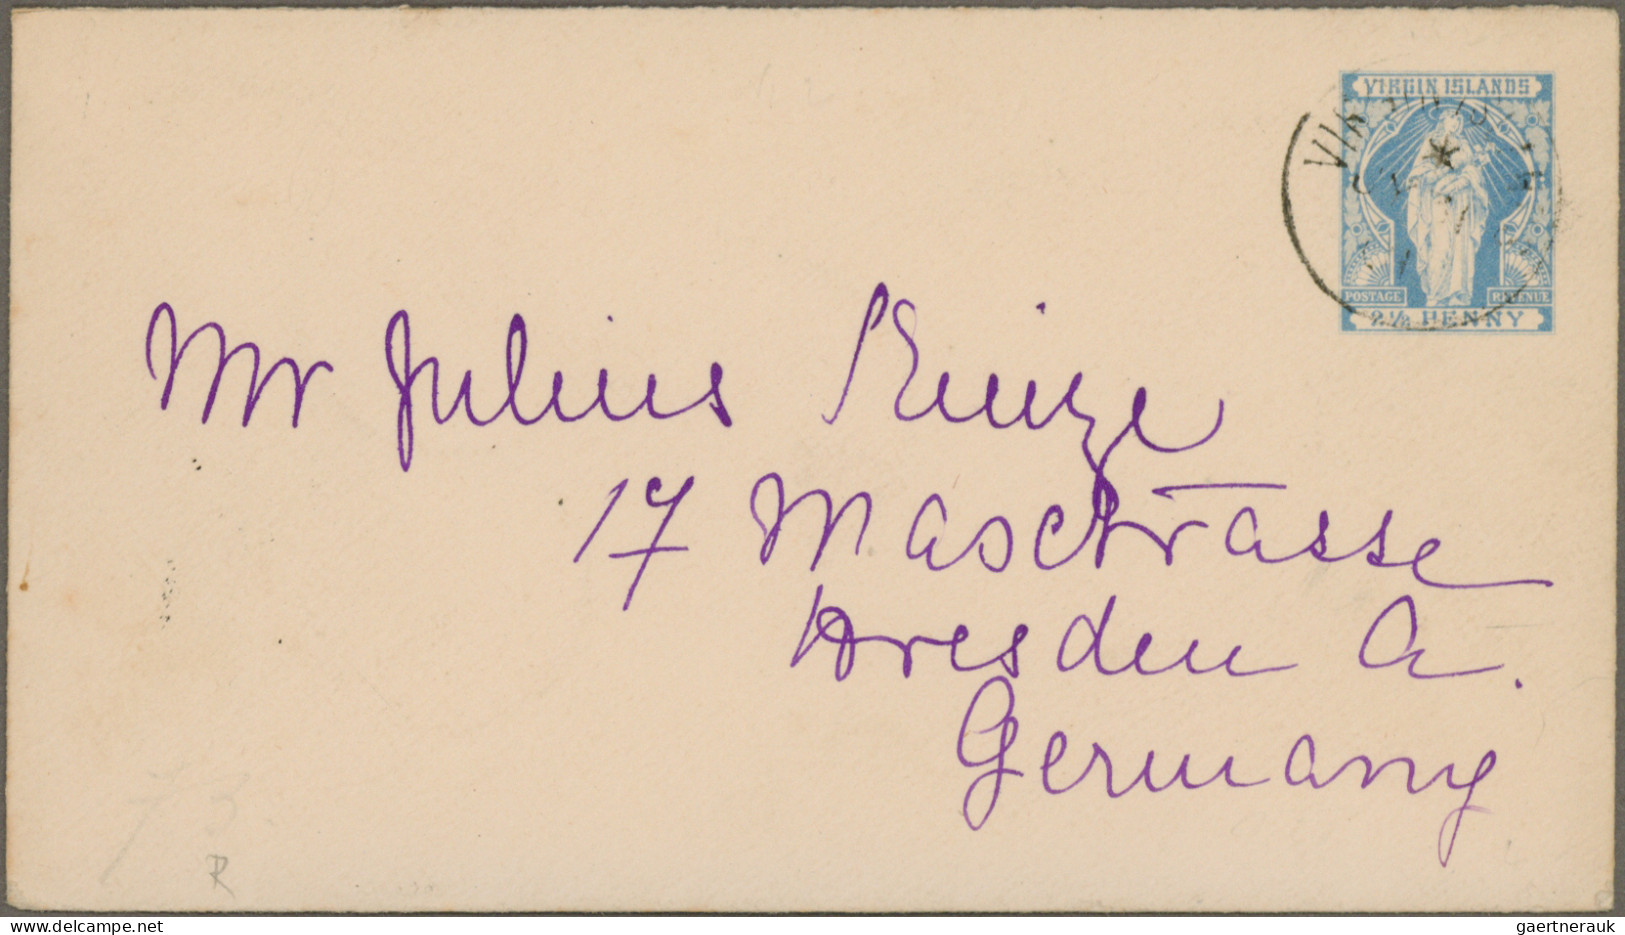 VIRGIN ISLANDS
VIRGIN IS
POSTAGE REVENUE
2½ PENNY
Mr Julius
17
Dresden A.
Germany
R
gaertnerauk